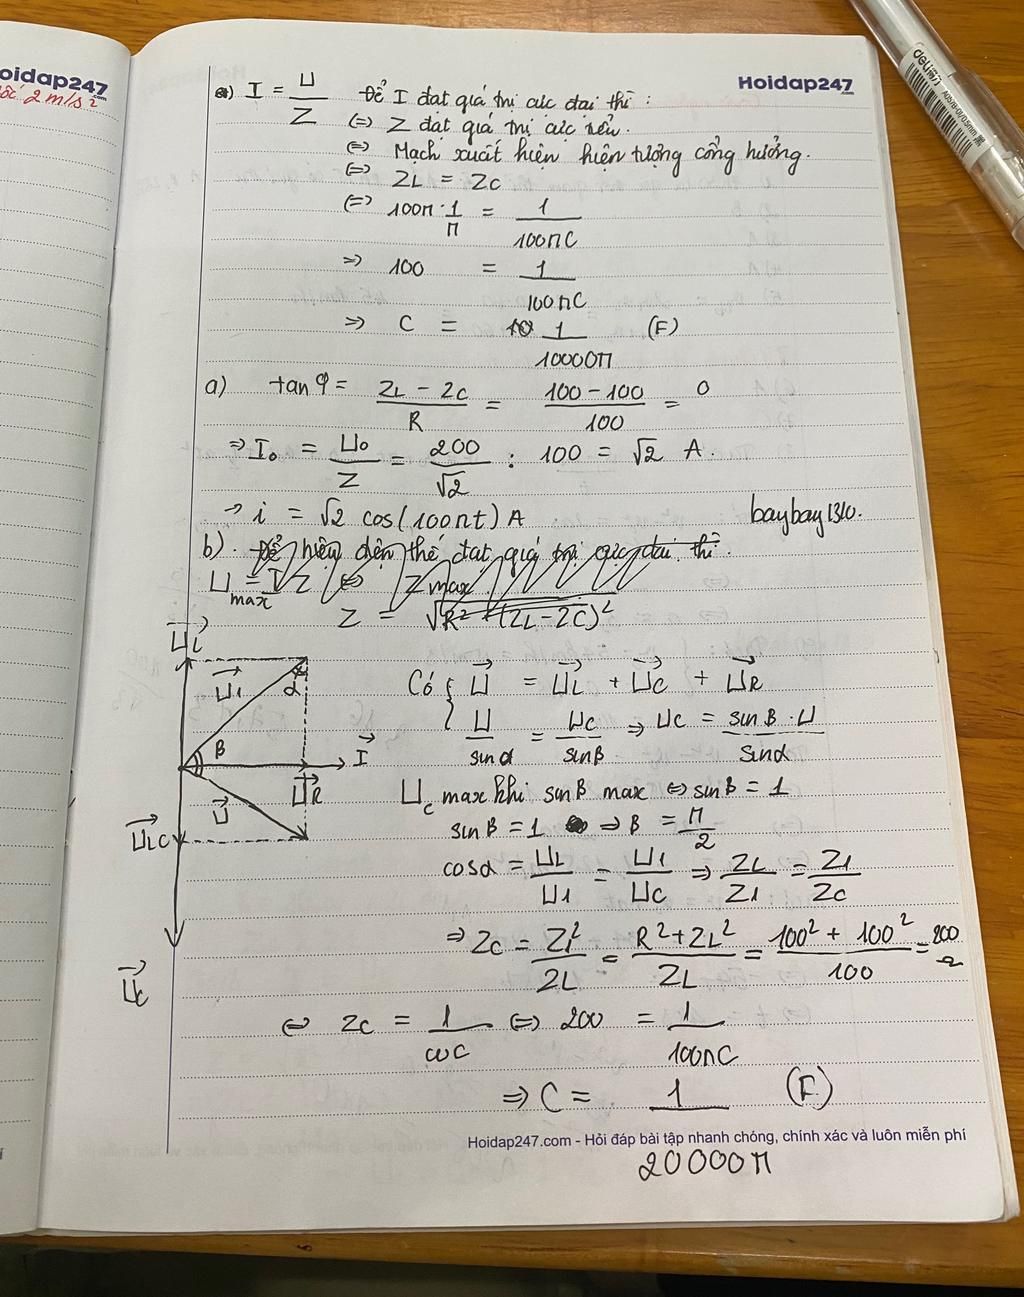 oidap247
.com
ốc 2 m/s²
Hoidap247
.com
a) I = U/Z Để I đạt giá trị cực đại thì :
(=) Z đạt giá trị cực tiểu.
(=) Mạch xuất hiện hiện tượng cộng hưởng.
(=) ZL = ZC
(=) 100π · 1/π = 1/100πC
=> 100 = 1/100πC
=> C = 1/10000π (F)
a) tan φ = (ZL - ZC)/R = (100 - 100)/100 = 0
=> I₀ = U₀/Z = 200/√2 : 100 = √2 A.
-> i = √2 cos(100πt) A
baybay1310.
b). Để hiệu điện thế đạt giá trị cực đại thì.
U max = I Z <=> Z max
Z = √(R² + (ZL - ZC)²)
UL
U1 α
β I
U UR
ULC
UC
Có { U = UL + UC + UR
U/sinα = UC/sinβ => UC = sinβ . U/sinα
UC max khi sinβ max <=> sinβ = 1
sinβ = 1 => β = π/2
cosα = UL/U1 = U1/UC => ZL/Z1 = Z1/ZC
=> ZC = Z1²/ZL = (R² + ZL²)/ZL = (100² + 100²)/100 = 200 Ω
<=> ZC = 1/ωC <=> 200 = 1/100πC
=> C = 1/20000π (F)
Hoidap247.com - Hỏi đáp bài tập nhanh chóng, chính xác và luôn miễn phí
deli得力
A575-01/0.5mm 黑